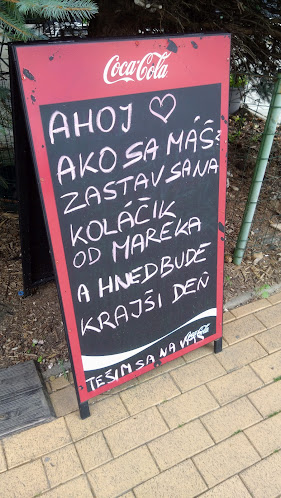 Coca-Cola
AHOJ ♡
AKO SA MÁŠ?
ZASTAV SA NA
KOLÁČIK
OD MAREKA
A HNEĎ BUDE
KRAJŠÍ DEŇ
Coca-Cola
TEŠIM SA NA VÁS